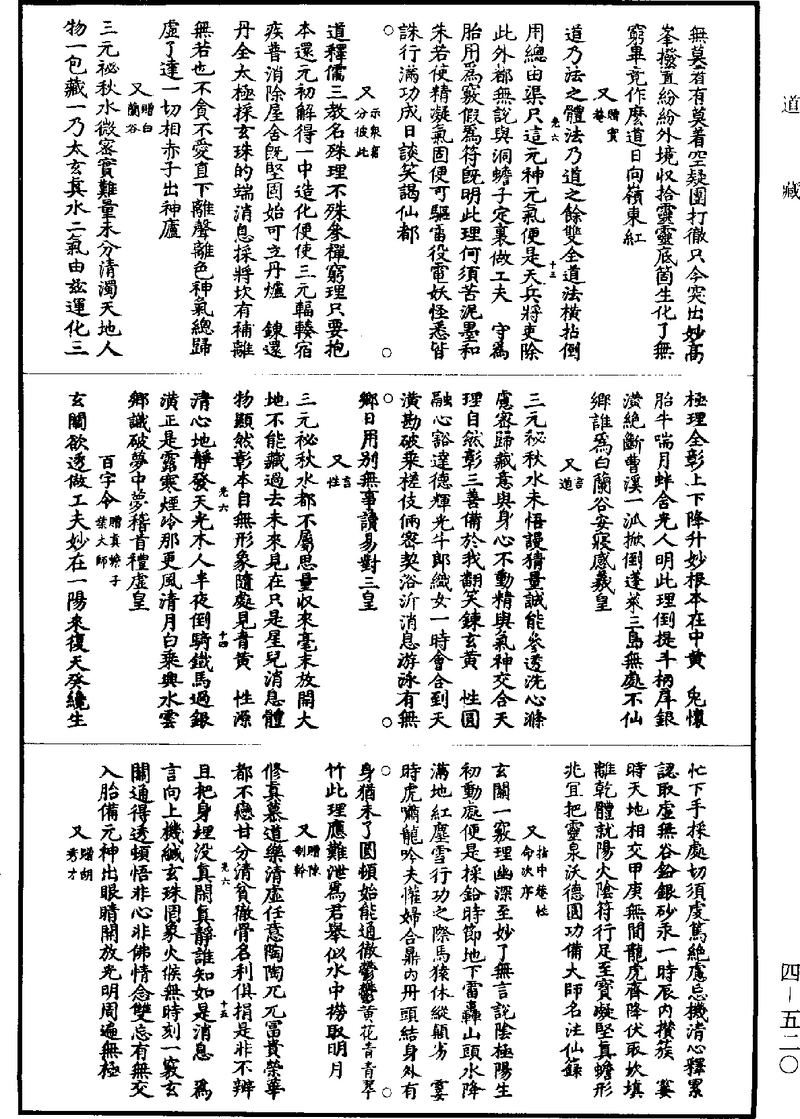 道藏
無莫著有莫着空疑團打徹只今突出妙高
峯撥置紛紛外境収拾靈靈底箇生化了無
窮畢竟作麽道日向嶺東紅
又 贈實菴
道乃法之體法乃道之餘雙全道法橫拈倒
用總由渠只這元神元氣便是天兵將吏除
此外都無說與洞蟾子定裏做工夫 守爲
胎用爲竅假爲符旣明此理何須苦泥墨和
朱若使精凝氣固便可驅雷役電妖怪悉皆
誅行滿功成日談笑謁仙都
又 示衆無分彼此
道釋儒三教名殊理不殊叅禪窮理只要抱
本還元初解得一中造化便使三元輻輳宿
疾普消除屋舍旣堅固始可立丹爐 鍊還
丹全太極採玄珠的端消息採將坎有補離
無若也不貪不愛直下離聲離色神氣總歸
虛了達一切相赤子出神廬
又 贈白蘭谷
三元祕秋水微密實難量未分清濁天地人
物一包藏一乃太玄眞水二氣由兹運化三
極理全彰上下降升妙根本在中黄 兎懷
胎牛喘月蚌含光人明此理倒提斗柄戽銀
潢絶斷曹溪一泒掀倒蓬萊三島無處不仙
鄉誰爲白蘭谷安寢感羲皇
又 言道
三元祕秋水未悟謾猜量誠能叅透洗心滌
慮密歸藏意與身心不動精與氣神交合天
理自然彰三善備於我翻笑鍊玄黄 性圓
融心豁達德輝光牛郎織女一時會合到天
潢勘破乘槎伎倆密契浴沂消息游泳有無
鄉日用別無事讀易對三皇
又 言性
三元祕秋水都不屬思量収來毫末放開大
地不能藏過去未來見在只是星兒消息體
物顯然彰本自無形象隨處見青黄 性源
清心地靜發天光木人半夜倒騎鐵馬過銀
潢正是露寒煙冷那更風清月白乘興水雲
鄉識破夢中夢稽首禮虛皇
百字令 贈眞蟾子葉大師
玄關欲透做工夫妙在一陽來復天癸纔生
忙下手採處切須虔篤絶慮忘機清心釋累
認取虛無谷鉛銀砂汞一時辰內攢簇 霎
時天地相交甲庚無間龍虎齊降伏取坎塡
離乾體就陽火陰符行足至寶凝堅眞蟾形
兆宜把靈泉沃德圓功備大師名注仙籙
又 指中菴性命次序
玄關一竅理幽深至妙了無言說陰極陽生
初動處便是採鉛時節地下雷轟山頭水降
滿地紅塵雪行功之際馬猿休縱顚劣 霎
時虎嘯龍吟夫懽婦合鼎內丹頭結身外有
身猶未了圓頓始能通徹鬱鬱黄花青青翠
竹此理應難泄爲君舉似水中撈取明月
又 贈陳制幹
修眞慕道樂清虛任意陶陶兀兀富貴榮華
都不戀甘分清貧徹骨名利俱捐是非不辨
且把身埋没眞閑眞靜誰知如是消息 爲
言向上機緘玄珠罔象火候無時刻一竅玄
關通得透頓悟非心非佛情念雙忘有無交
入胎備元神出眼睛開放光明周遍無極
又 贈胡秀才
光六
十三
光六
十四
光六
十五
四-五二〇